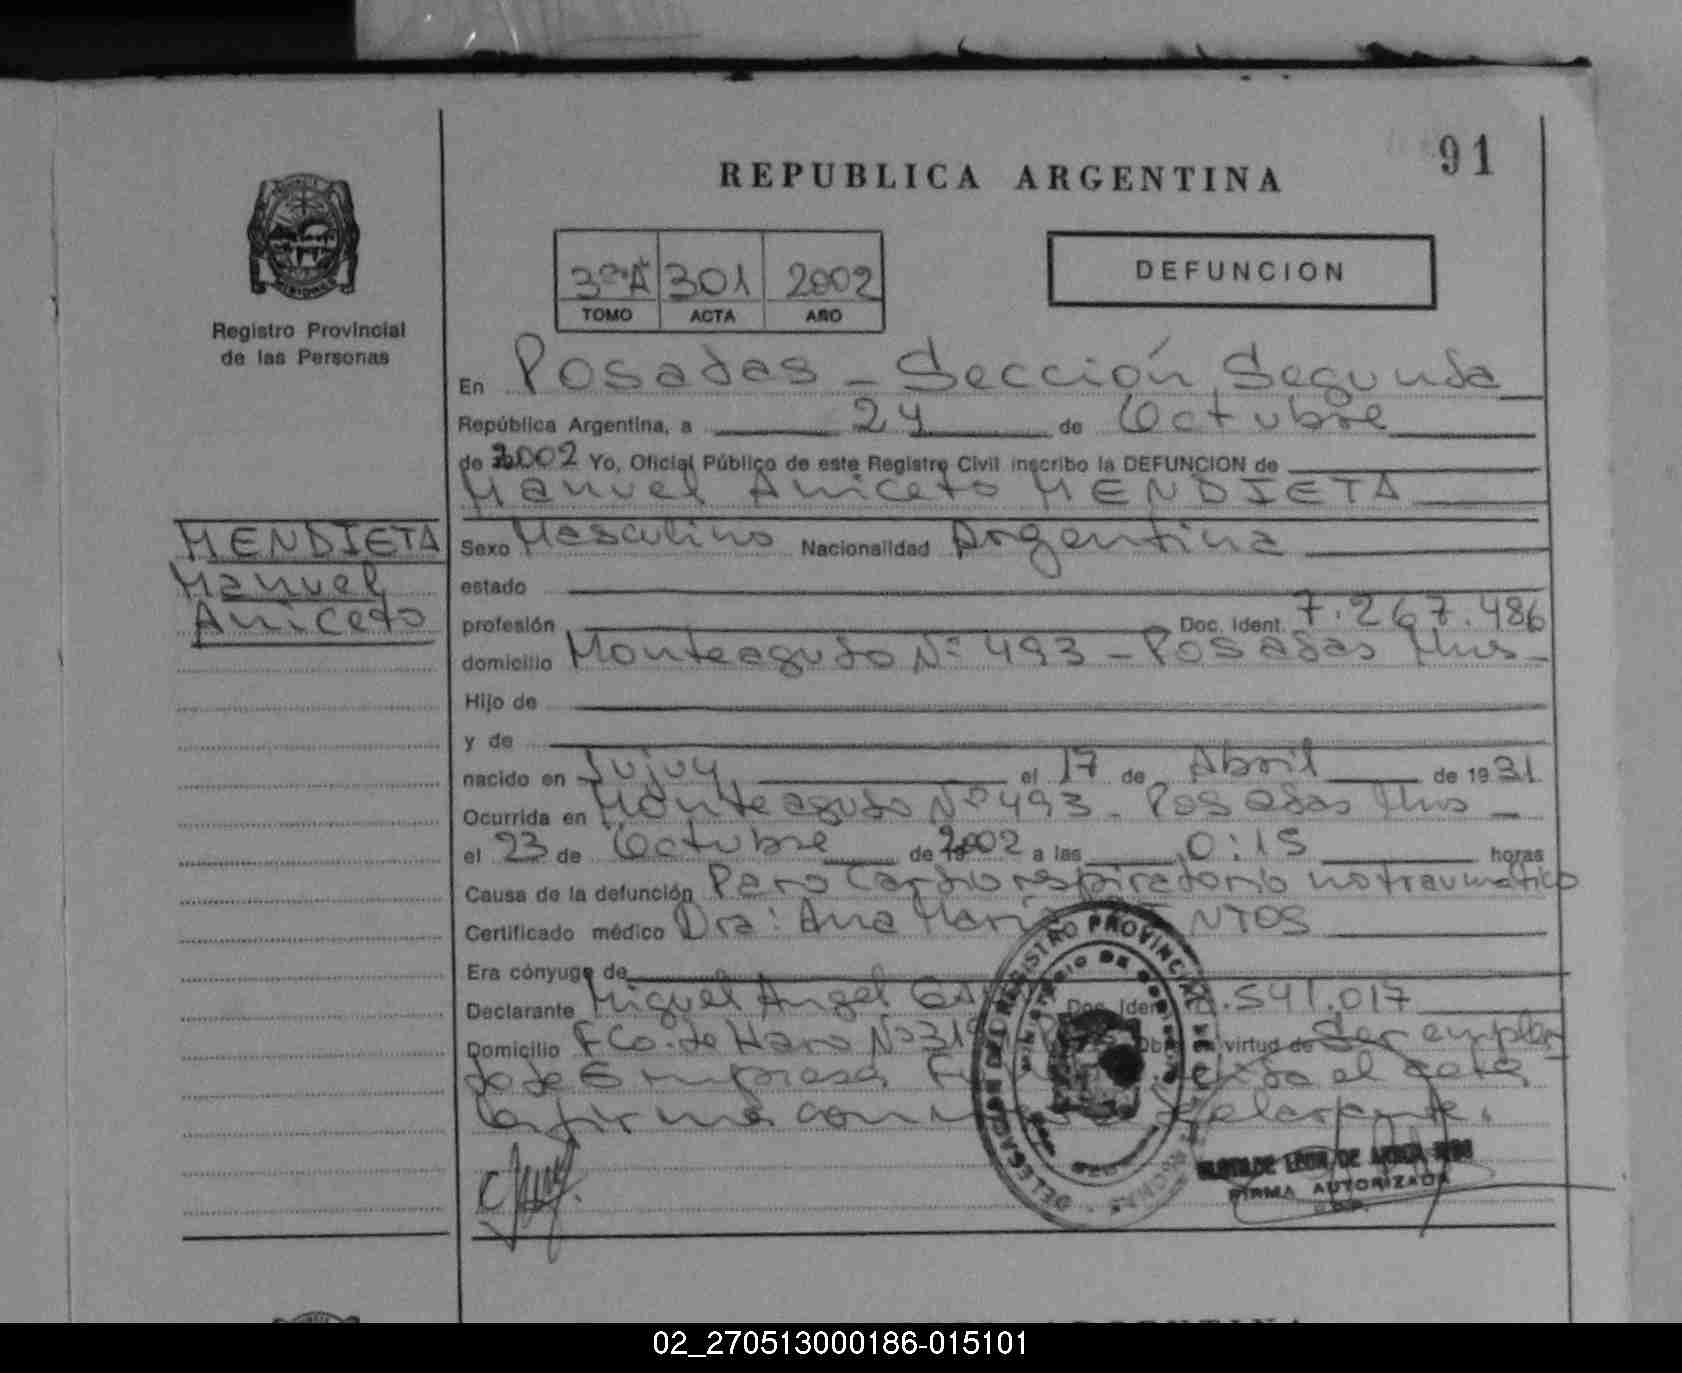 91
REPUBLICA ARGENTINA
3º A 301 2002
TOMO ACTA AÑO
DEFUNCION
Registro Provincial
de las Personas
En Posadas - Sección Segunda
República Argentina, a 24 de Octubre
de 2002 Yo, Oficial Público de este Registro Civil inscribo la DEFUNCION de
Manuel Aniceto MENDIETA
MENDIETA
Manuel
Aniceto
Sexo Masculino Nacionalidad Argentina
estado
profesión Doc. Ident. 7.267.486
domicilio Monteagudo Nº 493 - Posadas Mns
Hijo de
y de
nacido en Jujuy el 17 de Abril de 1931
Ocurrida en Monteagudo Nº 493 - Posadas Mns
el 23 de Octubre de 2002 a las 0:15 horas
Causa de la defunción Paro Cardiorespiratorio no traumático
Certificado médico Dra: Ana María
Era cónyuge de
Declarante Miguel Angel Doc. Ident. .541.017
Domicilio Fco. de Haro Nº 31 Obra en virtud de Ser emplea
do de Empresa el acta
la firma con declarante.
DELEGACION DEL REGISTRO PROVINCIAL
MINISTERIO DE GOBIERNO
FIRMA AUTORIZADA
02_270513000186-015101